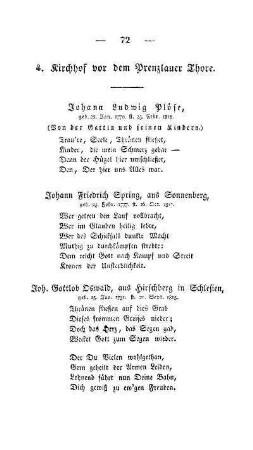 — 72 —
4. Kirchhof vor dem Prenzlauer Thore.
Johann Ludwig Plöse,
(Von der Gattin und seinen Kindern.)
Trau're, Seele, Thränen fließet,
Kinder, die mein Schmerz gebar —
Denn der Hügel hier umschließet,
Den, Der hier uns Alles war.
Johann Friedrich Spring, aus Sonnenberg,
Wer getreu den Lauf vollbracht,
Wer im Glauben heilig lebte,
Wer des Schicksals dunkle Macht
Muthig zu durchkämpfen strebte:
Dem reicht Gott nach Kampf und Streit
Kronen der Unsterblichkeit.
Joh. Gottlob Oswald, aus Hirschberg in Schlesien,
Thränen fließen auf dies Grab
Dieses frommen Greises nieder;
Doch das Herz, das Segen gab,
Wecket Gott zum Segen wieder.
Der Du Vielen wohlgethan,
Gern geheilt der Armen Leiden,
Lehrend führt nun Deine Bahn,
Dich gewiß zu ew'gen Freuden.